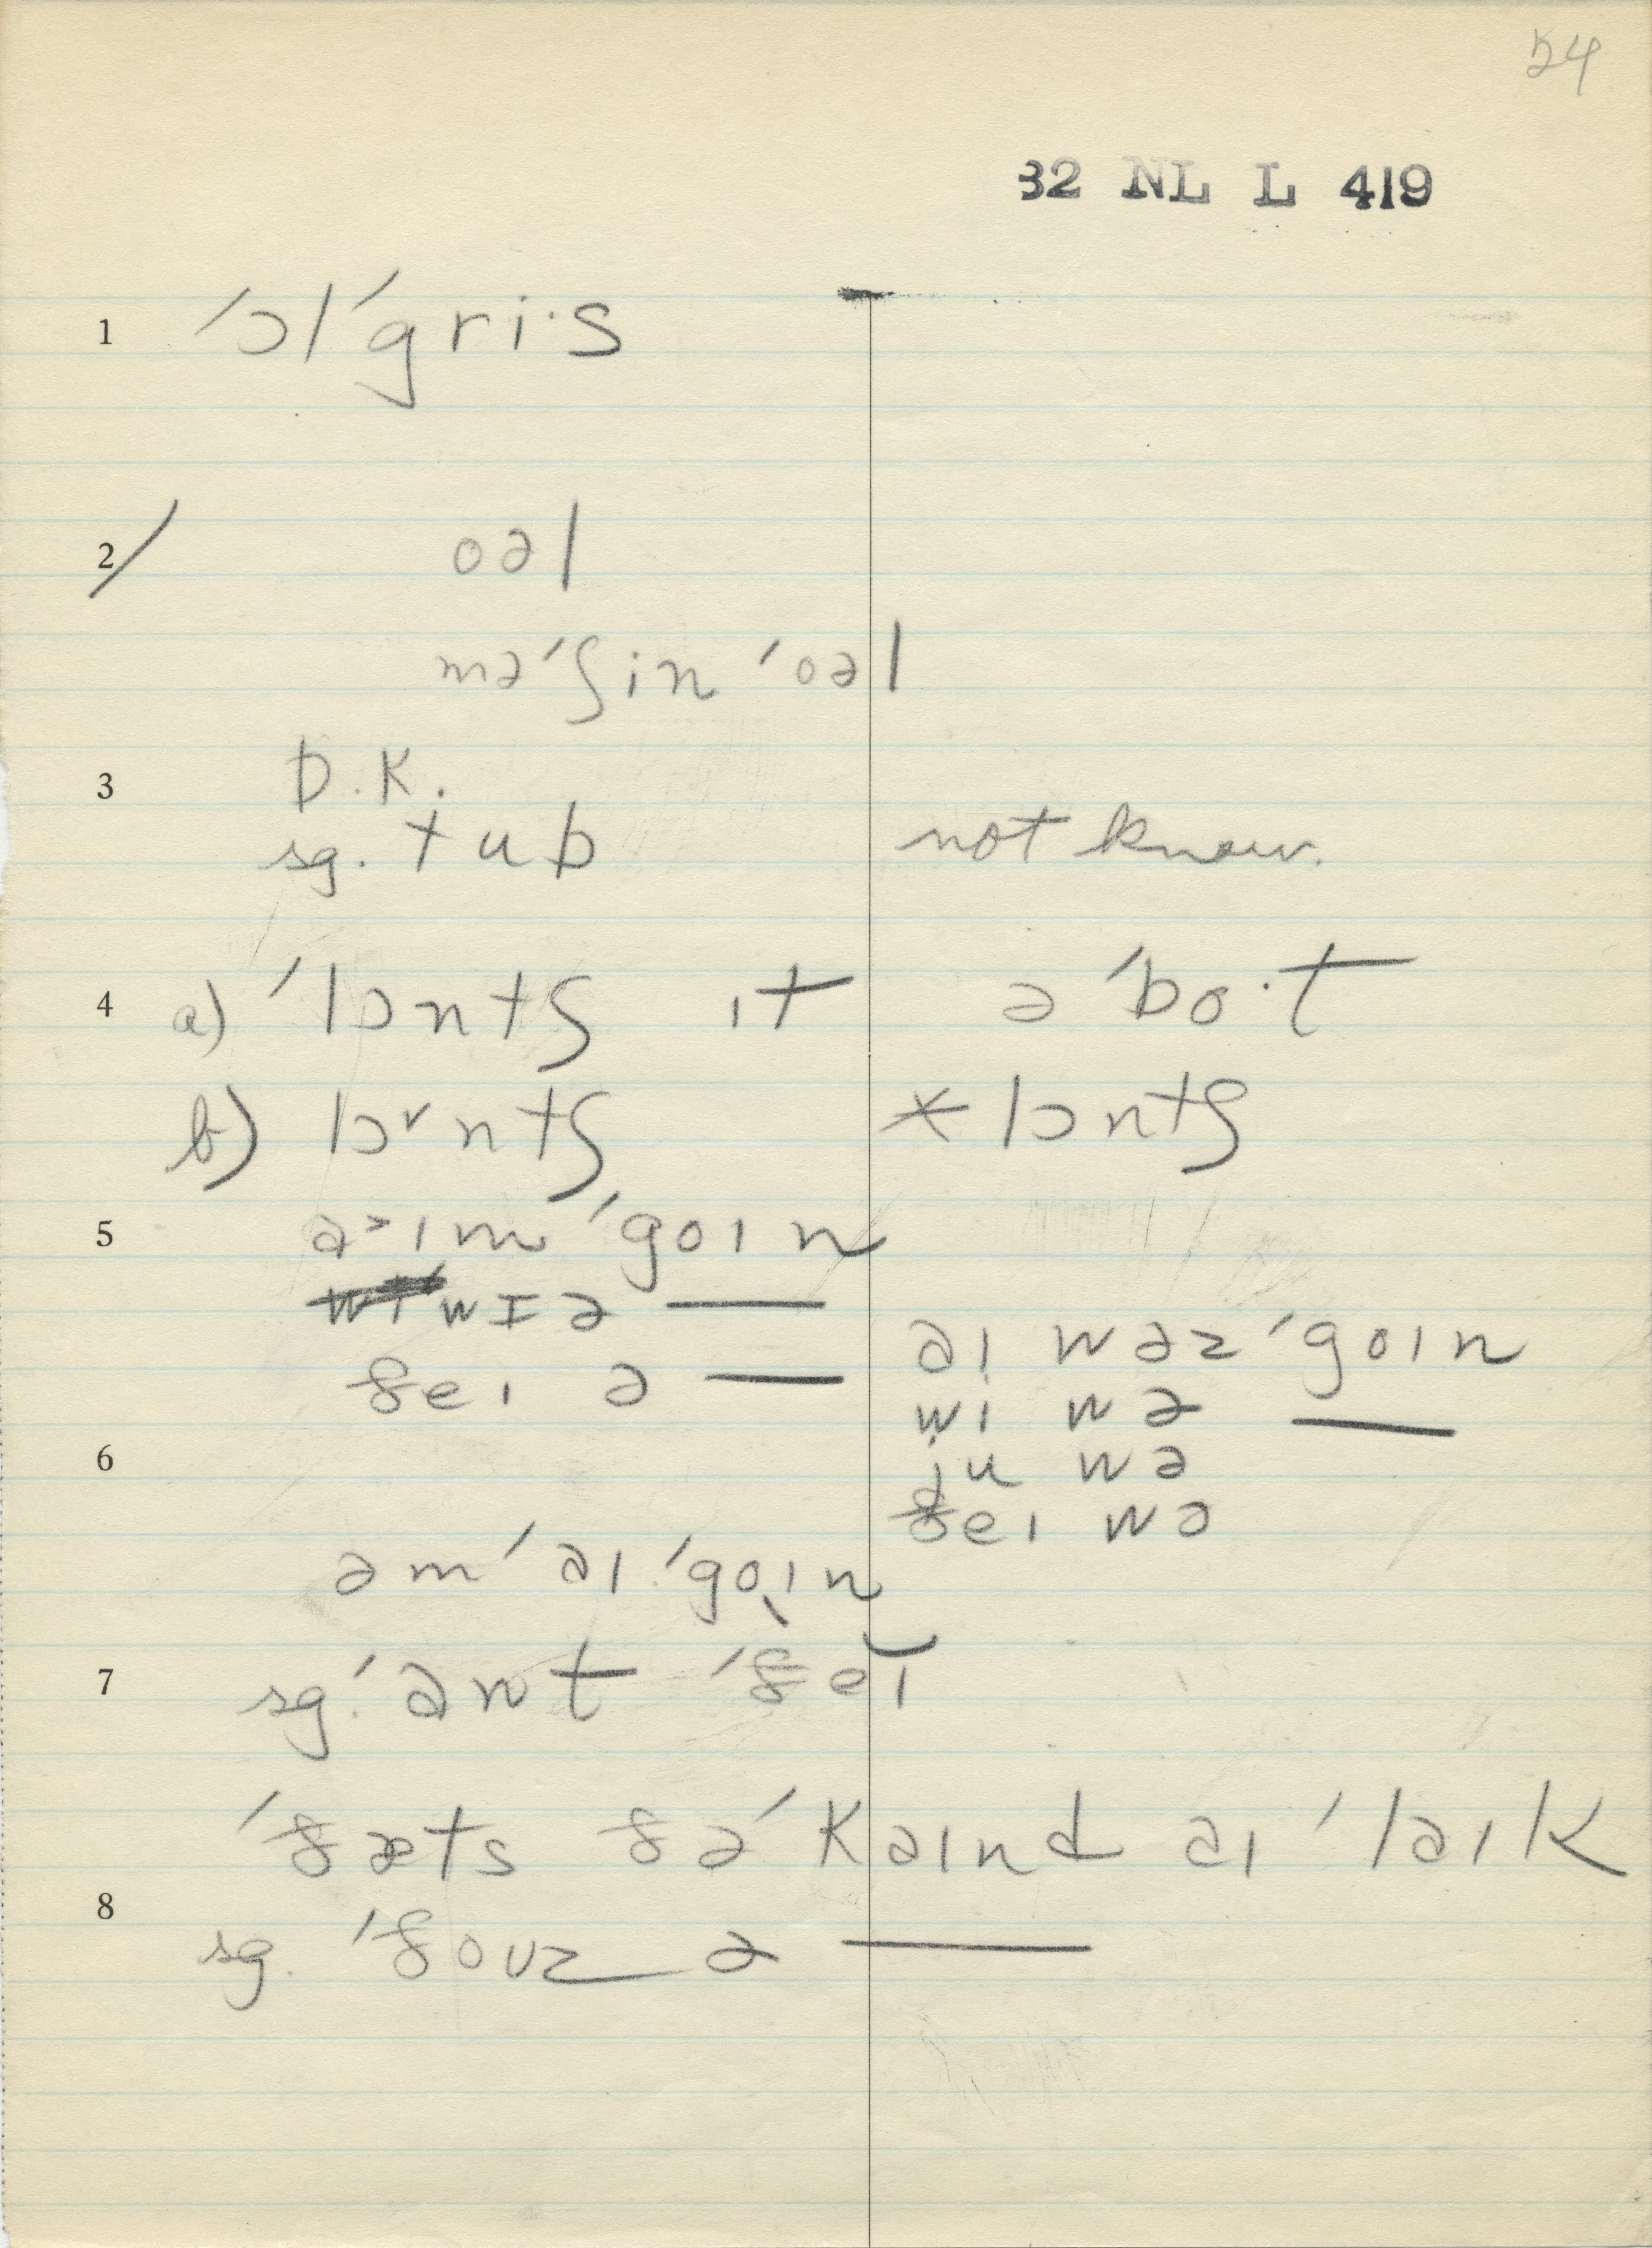 54
32 NL L 419
1 ˈɔlˈgri·s
2/ oəl
məˈʃin ˈoəl
3 D.K.
sg. tub not know.
4 a) ˈlɔntʃ ɪt əˈbo·t
b) lɔ˅ntʃ *lɔntʃ
5 a˃ɪm ˈgoɪn
wɪə —
ðeɪ ə — aɪ wəz ˈgoɪn
wi wə —
6 ju wə
ðeɪ wə
əm ˈaɪ ˈgoɪn
7 sg. ˈant ˈðeɪ
ˈðæts ðəˈkaɪnd aɪ ˈlaɪk
8 sg. ˈðoʊz ə —